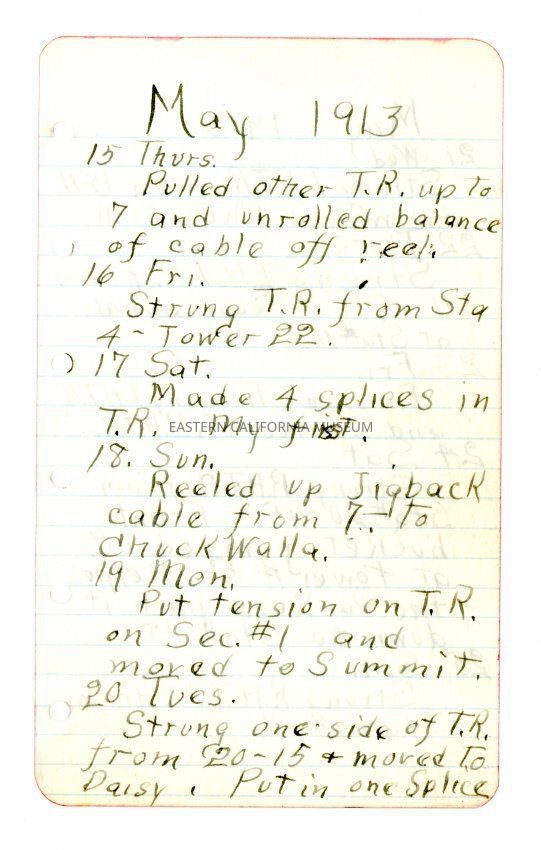 May 1913
15 Thurs.
Pulled other T.R. up to
7 and unrolled balance
of cable off reel.
16 Fri.
Strung T.R. from Sta
4 - Tower 22.
17 Sat.
Made 4 splices in
T.R. My first.
EASTERN CALIFORNIA MUSEUM
18. Sun.
Reeled up Jigback
cable from 7 - to
Chuck Walla.
19 Mon.
Put tension on T.R.
on Sec. #1 and
moved to Summit.
20 Tues.
Strung one side of T.R.
from 20-15 + moved to
Daisy. Put in one Splice